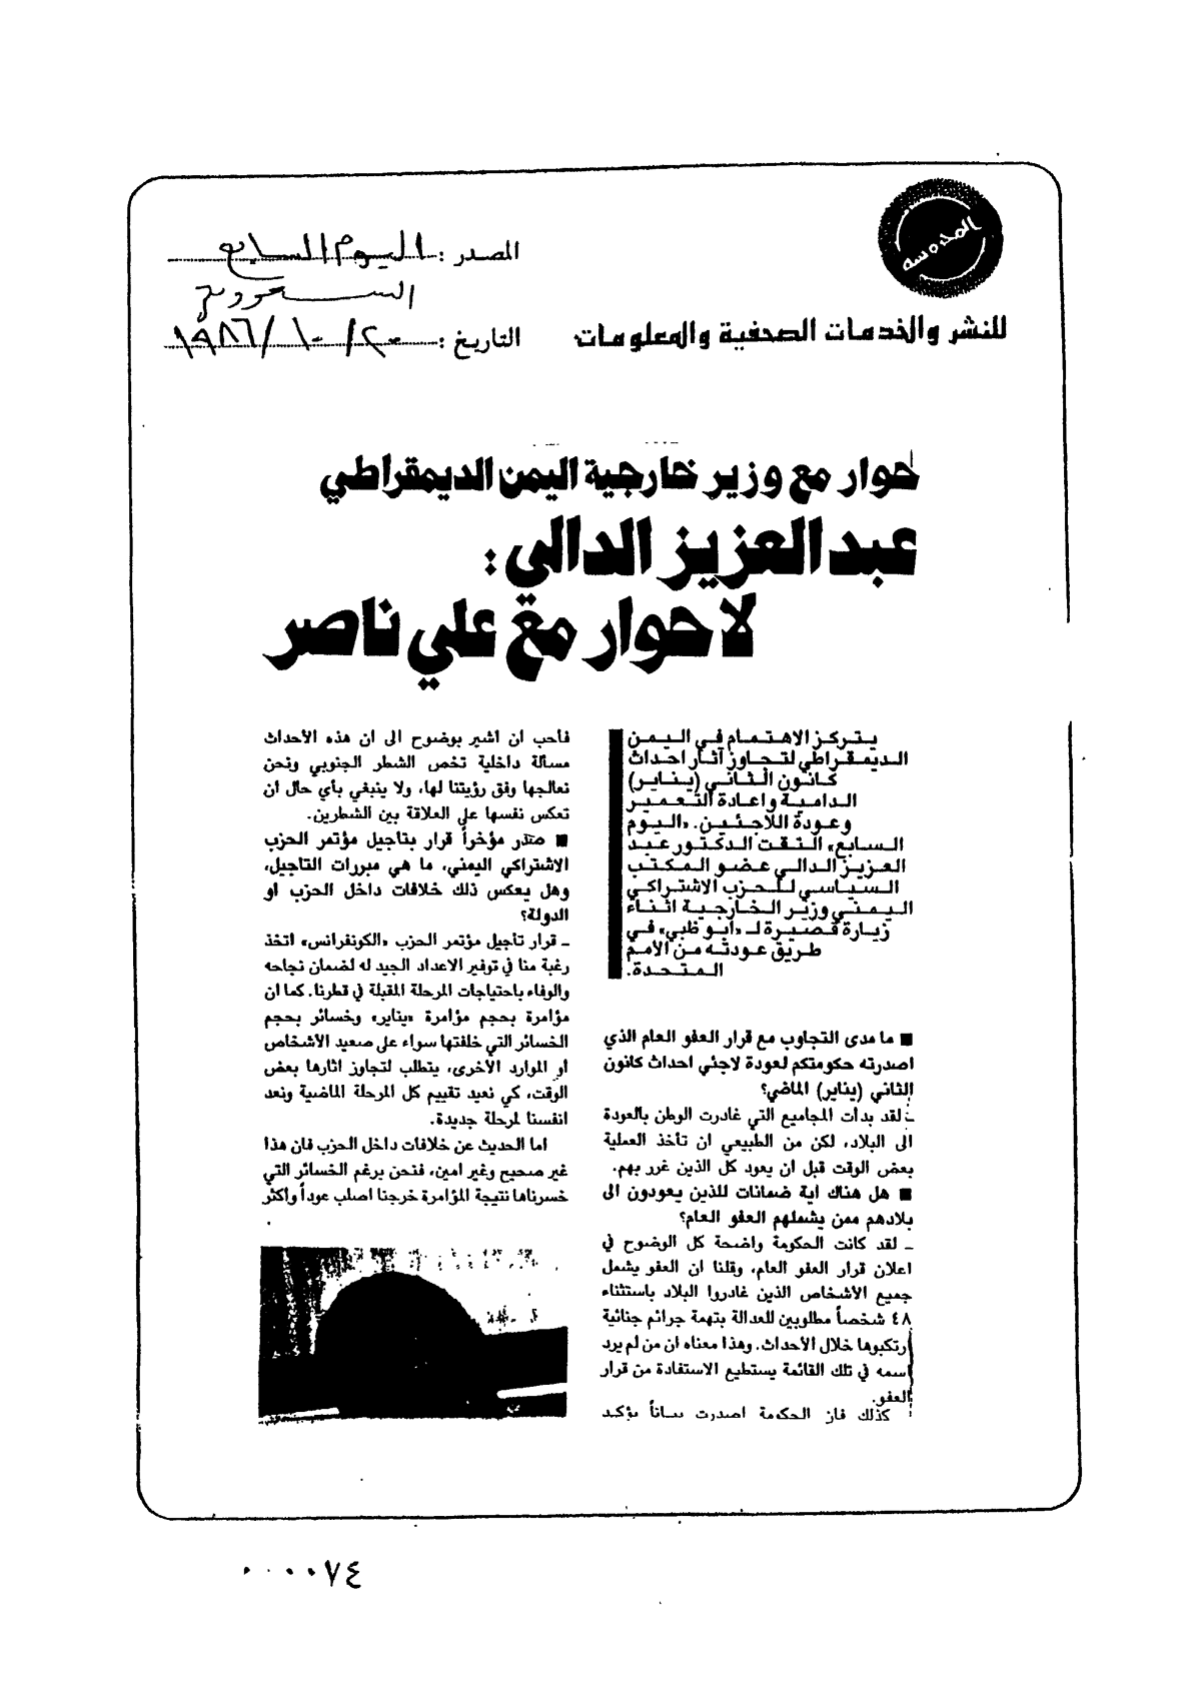 المحروسة
للنشر والخدمات الصحفية والمعلومات
المصدر : اليوم السابع
السعودية
التاريخ : ٢٠/١٠/١٩٨٦
حوار مع وزير خارجية اليمن الديمقراطي
عبد العزيز الدالي :
لا حوار مع علي ناصر
يتركز الاهتمام في اليمن
الديمقراطي لتجاوز آثار احداث
كانون الثاني (يناير)
الدامية واعادة التعمير
وعودة اللاجئين. «اليوم
السابع» التقت الدكتور عبد
العزيز الدالي عضو المكتب
السياسي للحزب الاشتراكي
اليمني وزير الخارجية اثناء
زيارة قصيرة لـ «أبو ظبي» في
طريق عودته من الأمم
المتحدة.
■ ما مدى التجاوب مع قرار العفو العام الذي
اصدرته حكومتكم لعودة لاجئي احداث كانون
الثاني (يناير) الماضي؟
ـ لقد بدات المجاميع التي غادرت الوطن بالعودة
الى البلاد، لكن من الطبيعي ان تأخذ العملية
بعض الوقت قبل ان يعود كل الذين غرر بهم.
■ هل هناك اية ضمانات للذين يعودون الى
بلادهم ممن يشملهم العفو العام؟
ـ لقد كانت الحكومة واضحة كل الوضوح في
اعلان قرار العفو العام، وقلنا ان العفو يشمل
جميع الأشخاص الذين غادروا البلاد باستثناء
٤٨ شخصاً مطلوبين للعدالة بتهمة جرائم جنائية
ارتكبوها خلال الأحداث. وهذا معناه ان من لم يرد
اسمه في تلك القائمة يستطيع الاستفادة من قرار
العفو.
كذلك فان الحكومة اصدرت بياناً يؤكد
فأحب ان اشير بوضوح الى ان هذه الأحداث
مسألة داخلية تخص الشطر الجنوبي ونحن
نعالجها وفق رؤيتنا لها، ولا ينبغي بأي حال ان
تعكس نفسها على العلاقة بين الشطرين.
■ صدر مؤخراً قرار بتأجيل مؤتمر الحزب
الاشتراكي اليمني، ما هي مبررات التاجيل،
وهل يعكس ذلك خلافات داخل الحزب او
الدولة؟
ـ قرار تأجيل مؤتمر الحزب «الكونفرانس» اتخذ
رغبة منا في توفير الاعداد الجيد له لضمان نجاحه
والوفاء باحتياجات المرحلة المقبلة في قطرنا. كما ان
مؤامرة بحجم مؤامرة «يناير» وخسائر بحجم
الخسائر التي خلفتها سواء على صعيد الأشخاص
او الموارد الأخرى، يتطلب لتجاوز اثارها بعض
الوقت، كي نعيد تقييم كل المرحلة الماضية ونعد
انفسنا لمرحلة جديدة.
اما الحديث عن خلافات داخل الحزب فان هذا
غير صحيح وغير امين، فنحن برغم الخسائر التي
خسرناها نتيجة المؤامرة خرجنا اصلب عوداً واكثر
٠٠٠٠٧٤